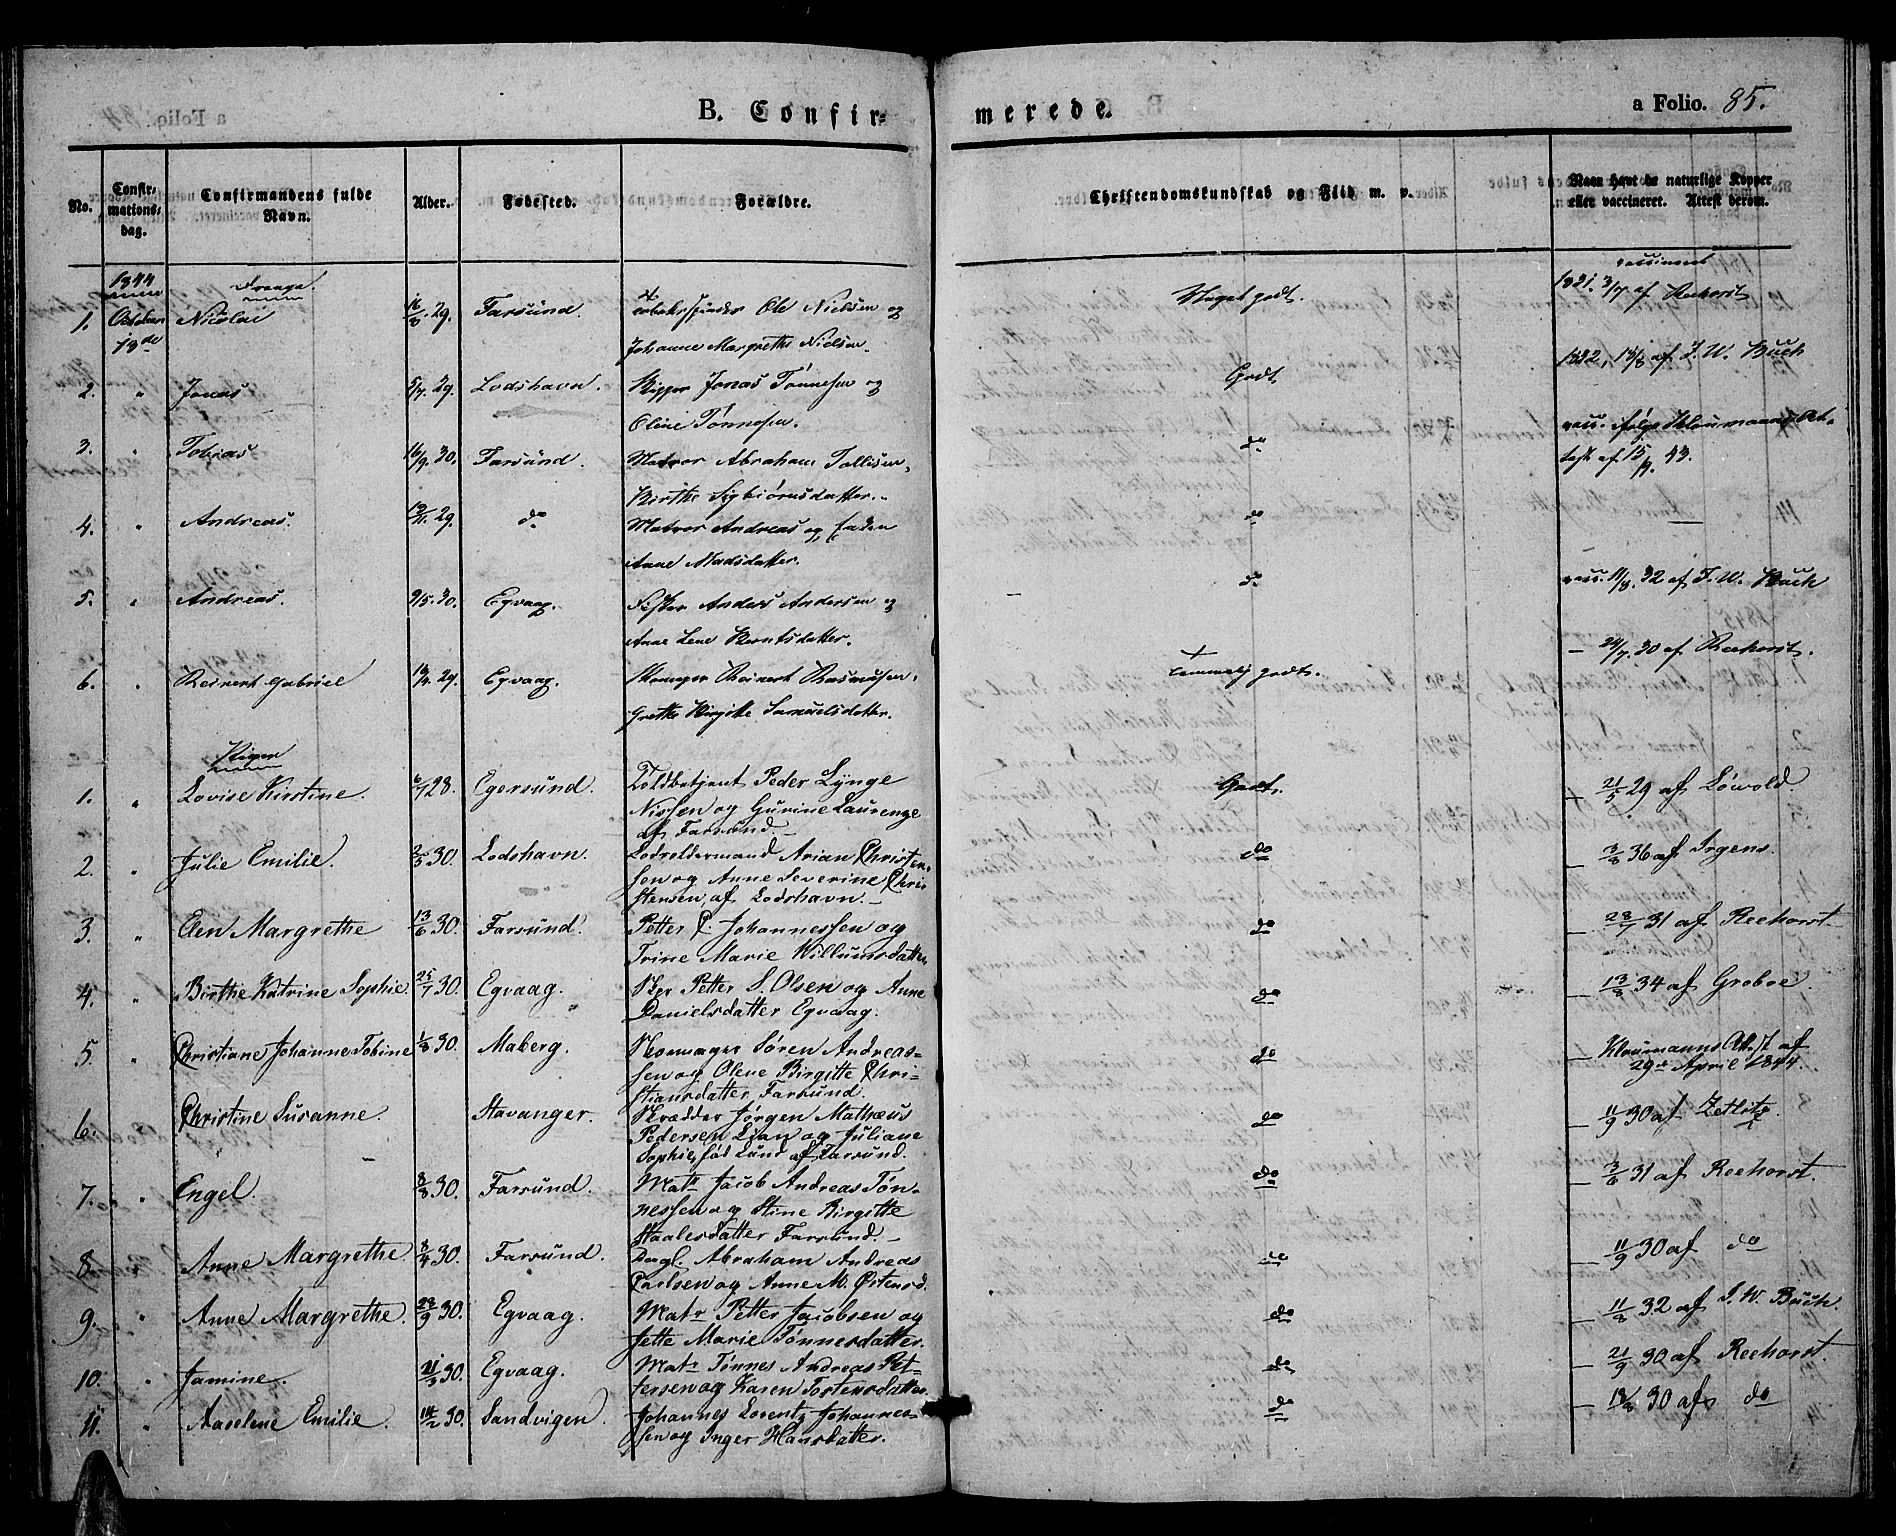 B. Confirmerede.
a Folio. 85.
No.
Confirmationsdag.
Confirmandens fulde Navn.
Alder.
Fødested.
Forældre.
Christendomskundskab og Flid m. v.
Naar havt de naturlige Kopper eller vaccineret. Attest derom.
1844
Drenge.
vaccineret
1. October 13de Nicolai 29. Farsund. Ole Nielsen og Meget godt. 1831. 3/7 af Reehorst
Johanne Margrethe Nielsen.
2. " Jonas 5/7. 29. Lodshavn. Skipper Jonas Tønnesen og Godt 1832, af J. W. Buch
Oline Tønnesen.
3. " Tobias 16/9. 30. Farsund. Matros Abraham Tollisen, do vacc. følge Kloumanns At-
Birthe Sigbiørnsdatter. test af 15/9. 43.
4. " Andreas. 29. do Matros Andreas og do —
Anne Madsdatter.
5. " Andreas. 9/5. 30. Egvaag. Fisker Anders Andersen og do vacc. 11/8. 32 af J. W. Buch
Anne Lene Berntsdatter.
6. " Reinert Gabriel 29. Egvaag. Skomager Reinert Rasmusen, Temmelig godt. — 24/7. 30 af Reehorst.
Grethe Birgitte Samuelsdatter.
Piger
1. " Lovise Kirstine. 6/7 28. Egersund. Toldbetjent Peder Lynge Godt. — 21/5 29 af Løwold.
Nissen og Gurine Laurenze
af Farsund.—
2. " Julie Emilie. 2/5 30. Lodshavn. Lodsoldermand Arian Christen- do — 3/8 36 af Irgens.
sen og Anne Severine Chri-
stensen, af Lodshavn.—
3. " Elen Margrethe 13/6 30. Farsund. Petter C. Johannessen og do — 28/7 31 af Reehorst
Trine Marie Willumsdatter,
4. " Birthe Katrine Sophie. 25/7 30. Egvaag. Skpr Petter S. Olsen og Anne do — 13/8 34 af Groboe
Danielsdatter Egvaag.
5 " Christiane Johanne Tobine 1/8 30. Maberg. Skomager Søren Andreas- do — Kloumanns Attest af
sen og Olene Birgitte Chri- 29de April 1844.
stiansdatter Farsund.
6. Christine Susanne Stavanger. Skrædder Jørgen Mathæus do — 11/9 30 af Zetlitz
Pedersen Lian og Juliane
Sophie, fød Lund af Farsund.
7. " Engel. 8/8 30. Farsund. Mats Jacob Andreas Tøn- do — 3/6 31 af Reehorst.
nessen og Stine Birgitte
Staalesdatter Farsund.—
8. " Anne Margrethe 8/4 30. Farsund. Dagl. Abraham Andreas do — 11/9 30 af do
Carlsen og Anne M. Østensd.
9. " Anne Margrethe. 28/9 30. Egvaag. Mats Petter Jacobsen og do — 11/8 32 af J. W. Buch.
Jette Marie Tønnesdatter.
10. " Jamine. 21/3 30. Egvaag. Mats Tønnes Andreas Pet- do — 21/9 30 af Reehorst.
tersen og Karen Torstensdatter.
11. " Aaselene Emilie. 14/2 30. Sandvigen. Johannes Lorentz Johannes- do — 18/8 30 af do
sen og Inger Hansdatter.